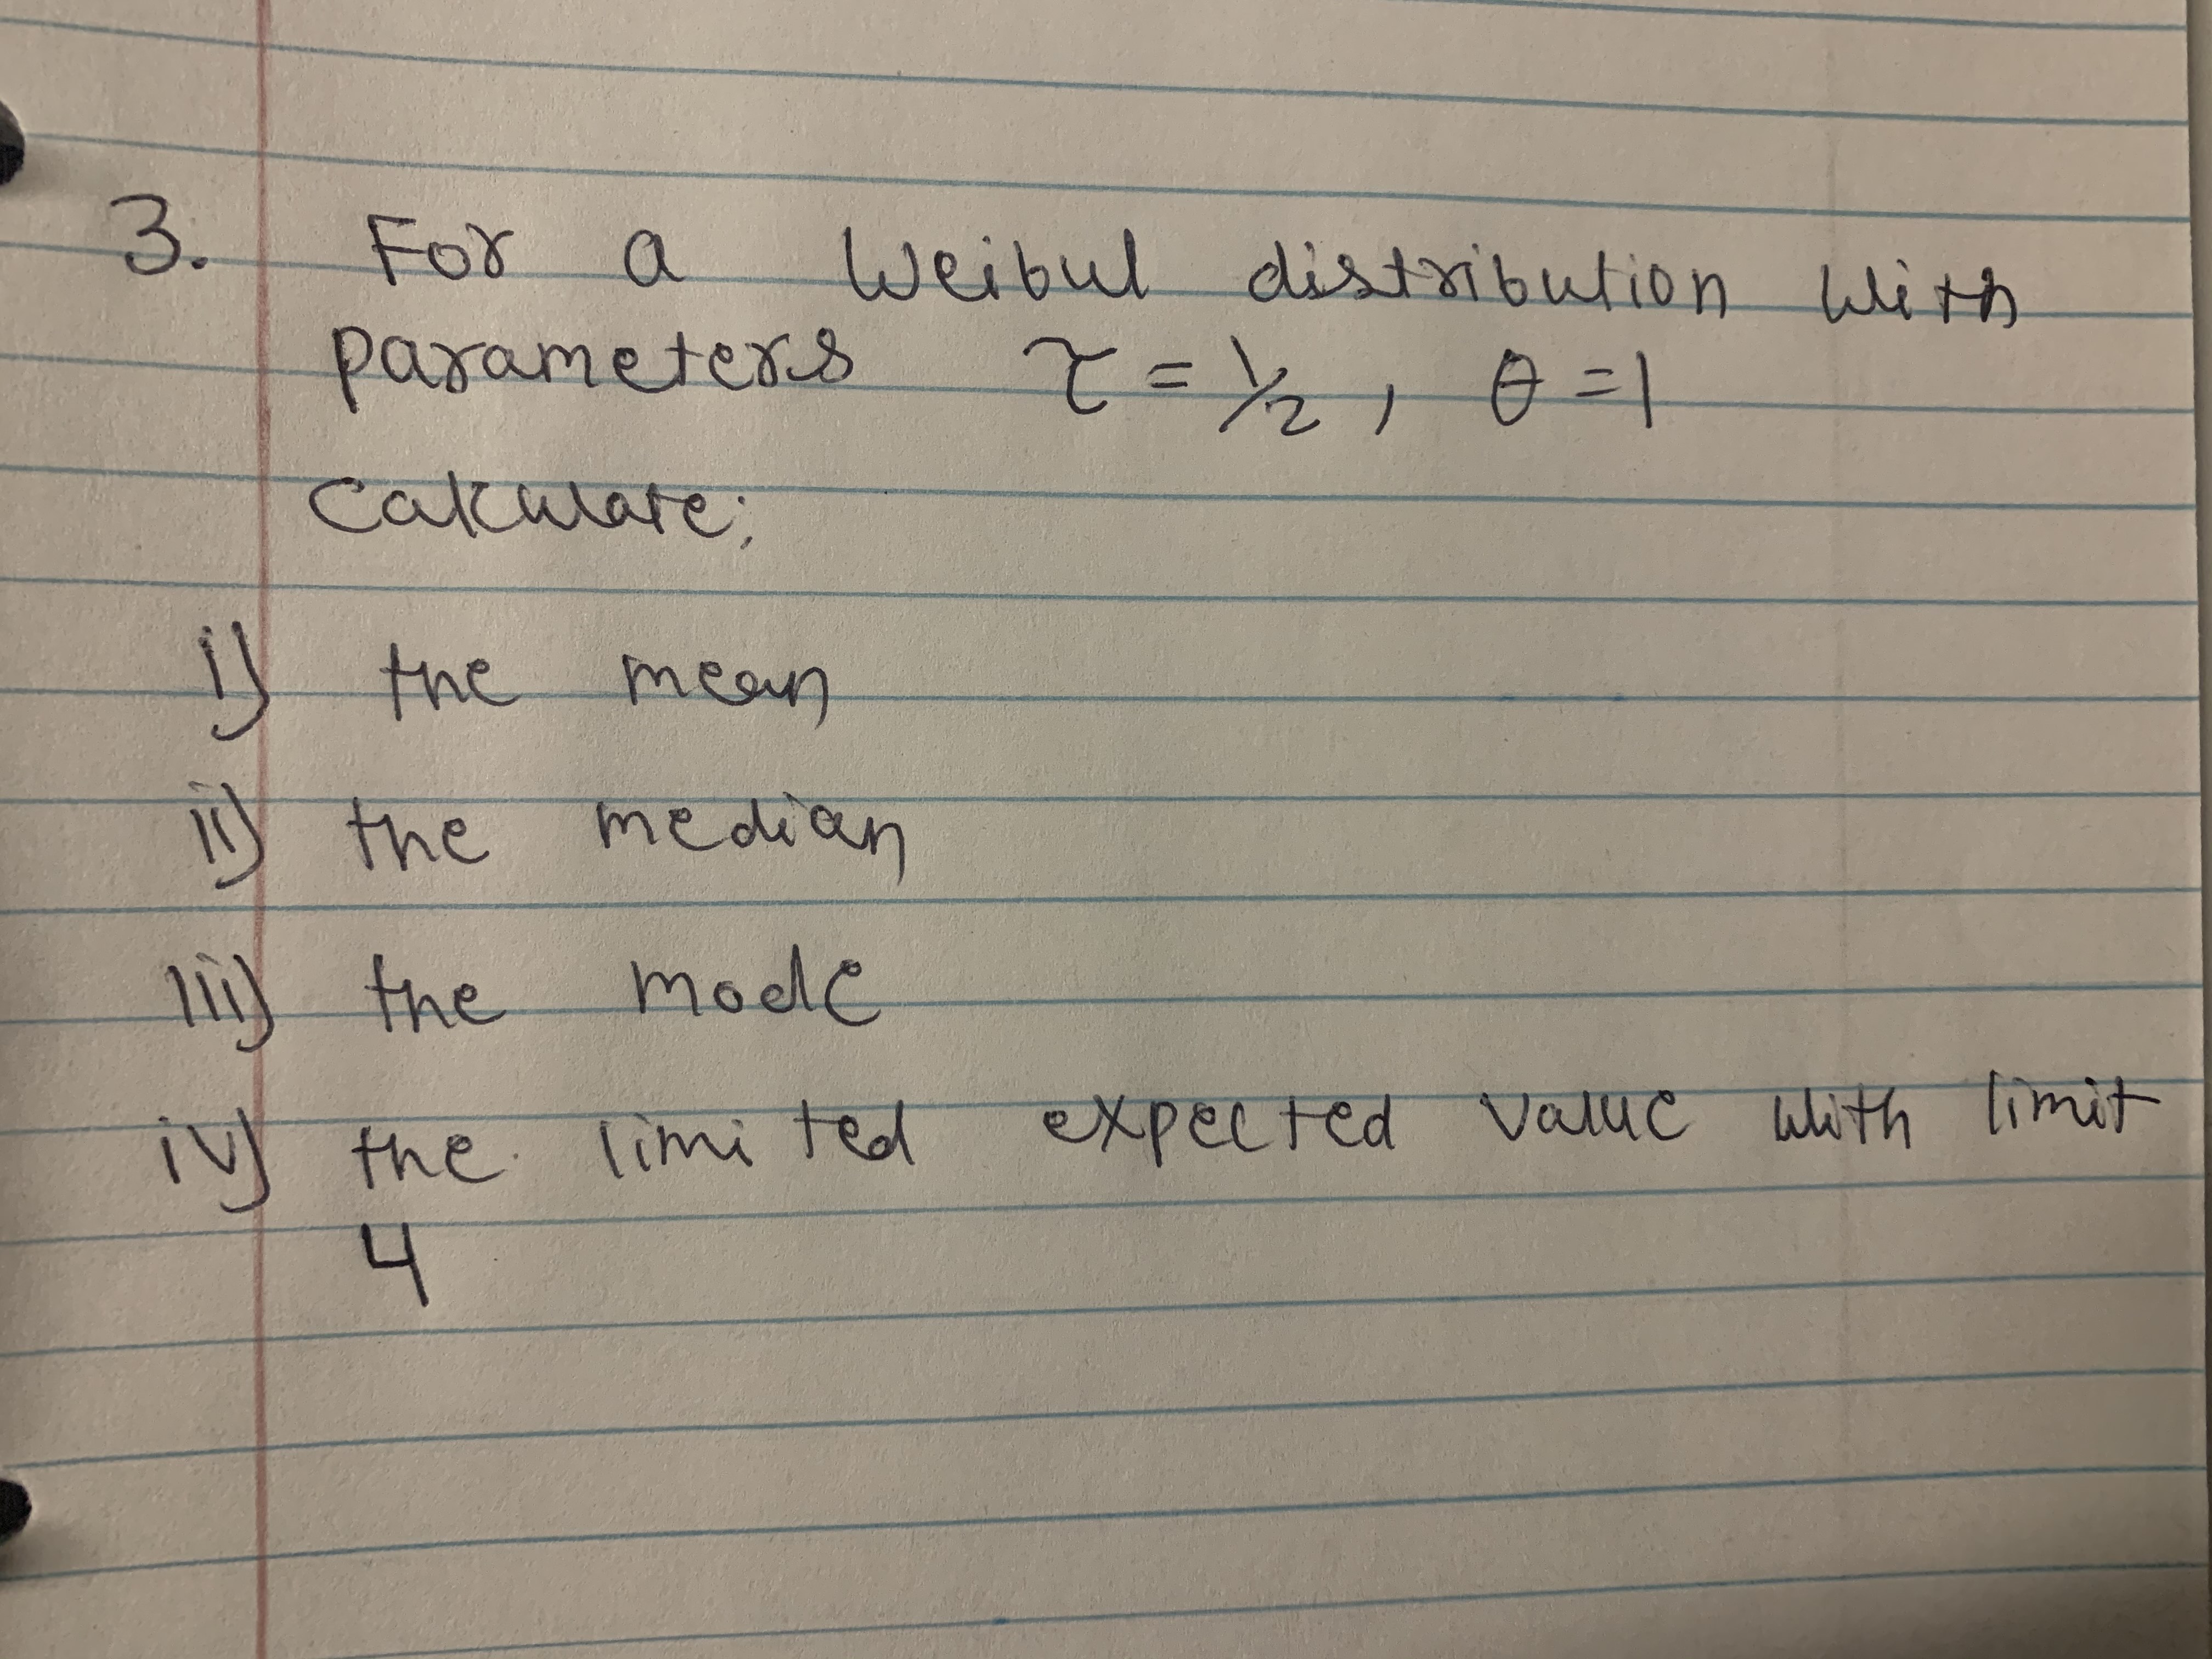 3. For a Weibul distribution with
parameters τ = 1/2, θ = 1
Calculate;
i) the mean
ii) the median
iii) the mode
iv) the limited expected value with limit
4